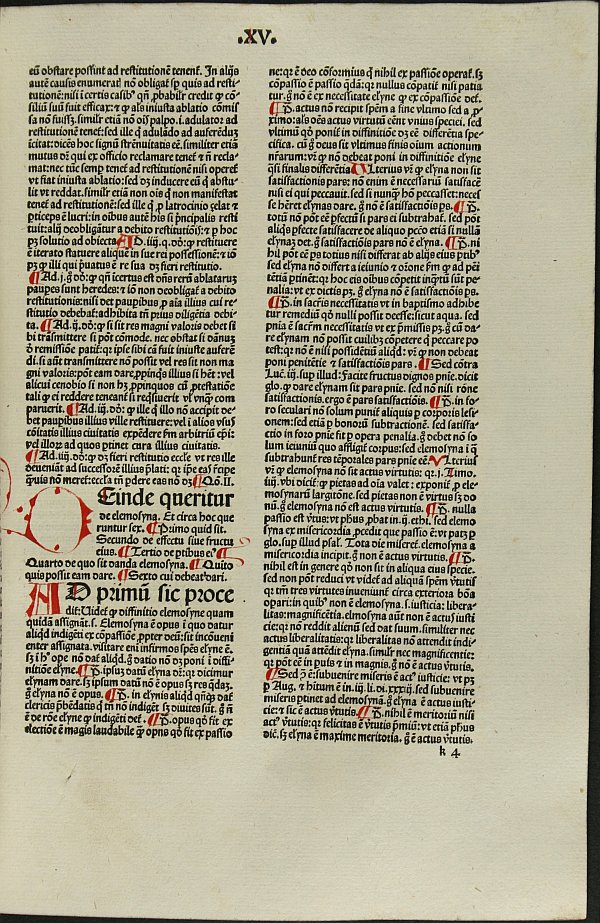 .XV.
eū obstare possint ad restitutionē tenenť. In alijs
autē causis enumeratꝭ nō obligať sp quis ad resti-
tutionē: nisi ī certis casibꝰ qn̄ pbabilr̄ credit ꝙ cō-
siliū suū fuit efficax: ⁊ ꝙ als iniusta ablatio comis
sa nō fuiss₃. similr̄ etiā nō oīs palpo. i. adulator ad
restitutionē teneť: sed ille q̇ adulādo ad auferēdu₃
īcitat: oīcēs hoc signū strēnuitatis eē. similiter etiā
mutus oꝛ qui ex officio reclamare teneť ⁊ n̄ recla-
mat: nec tn̄ semp teneť ad restitutionē nisi opereť
vt fiat iniusta ablatio: sed ꝺ₃ inducere eū q̇ abstu-
lit vt reddat. similr̄ etiā non oīs q̇ non manifestat
teneť ad restitutionē: sed ille q̇ p latrocinio ₃elat ⁊
pticeps ē lucri: in oibus autē his si pncipalis resti
tuit: alij deobligātur a debito restitutiōis: ⁊ p hoc
p₃ solutio ad obiecta. ¶ AD. iiij. q. ꝺō: ꝙ restituere
ē iterato statuere aliquē in sue rei possessionē: ⁊ iō
p₃ ꝙ illi qui pꝛiuatus ē re sua ꝺ₃ fieri restitutio.
¶ Ad. j. g̊ ꝺō: ꝙ qn̄ īcertus est dn̄s rerū ablataru₃
paupes sunt heredes: ⁊ iō non deobligať a debito
restitutionis: nisi det paupibus p aīa illius cui re-
stitutio debebať: adhibita tn̄ pꝛius diligētia debi-
ta. ¶ Ad. ij. ꝺō: ꝙ si sit res magni valoris debet si
bi trāsmittere si pōt cōmode. nec obstat si dānū₃
ꝺ remissiōe patiť: q̇ ipse sibi cā fuit iniuste auferē
di. si aut̄ transmittere nō possit vel res sit non ma
gni valoris: pōt eam dare ppinqs illius si h₃ : vel
alicui cenobio si non h₃ ppinquos cū ptestatiōe
tali ꝙ ei reddere teneanť si reqsiuerit vl̓ vnqꝫ com
paruerit. ¶ Ad. iij. ꝺō: ꝙ ille q̇ illo nō accipit de-
bet paupibus illius ville restituere: vel ī alios vsus
cōitatis illius ciuitatis expēdere fm̄ arbitriū epi:
vel illoꝝ ad quos ptinet cura illius ciuitatis.
¶ Ad. iiij. ꝺō: ꝙ ꝺ₃ fieri restitutio eccl̓e vt res ille
deueniāt ad successorē illius plati: qꝛ ipe eas fcipe
qūis nō meret: eccl̓a tn̄ pdere eas nō ꝺ₃. ¶ Qō. II.
DEinde queritur
de elemosyna. Et circa hoc que
runtur sex. ¶ Pꝛimo quid sit.
Secundo de effectu siue fructu
eius. ¶ Tertio de ptibus eiꝰ. ¶
Quarto de quo sit danda elemosyna. ¶ Quīto
quis possit eam dare. ¶ Sexto cui debeať dari.
AD primū sic proce
ditur. Videť ꝙ diffinitio elemosyne quam
quidā assignāt. s. Elemosyna ē opus ī quo datur
aliqd indigēti ex cōpassiōe ppter deū: sit incōueni
enter assignata. visitare eni infirmos spēs elyne ē.
s₃ ī hꝰ opē nō dať aliqd. g̊ datio nō ꝺ₃ poni ī diffi-
nitiōe elyne. ¶ P. ipsu₃ datū elyna oꝛ: qꝛ dicimur
elynam dare. s₃ ipsum datū nō ē opus s₃ res qdā₃.
g̊ elyna nō ē opus. ¶ P. in elynis aliqd qn̄qꝫ dať
clericis pbēdatis q̇ tn̄ nō indigēt s₃ diuites sūt. g̊ n̄
ē de rōe elyne ꝙ indigēti deť. ¶ P. opus qd̓ fit ex
electiōe ē magis laudabile qꝫ opus qd̓ fit ex passio
ne: qꝛ ē ꝺeo cōformius q̇ nihil ex passiōe operať. s₃
cōpassio ē passio qdā: qꝛ nullus cōpatiť nisi patia
tur. g̊ nō ē ex necessitate elyne ꝙ ex cōpassiōe deť.
¶ P. actus nō recipit spēm a fine vltimo sed a p-
ximo: als oēs actus virtutū eēnt vnius speciei. sed
vltimū qd̓ poniť in diffinitiōe ꝺ₃ eē differētia spe-
cifica. cū g̊ deus sit vltimus finis oium actionum
nr̄arum: vr̄ ꝙ nō debeat poni in diffinitiōe elyne
qsi finalis differētia. ¶ Ulterius vr̄ ꝙ elyna non sit
satisfactionis pars: nō enim ē necessariū satisfacē
nisi ei qui peccauit. sed si nunqꝫ hō peccasset: necel
se hēret elynas dare. g̊ nō ē satisfactōis ps. ¶ P.
totū nō pōt eē pfectū si pars ei subtrahať. sed pōt
aliqs pfecte satisfacere de aliquo pctō etiā si nullā
elyna₃ det. g̊ satisfactiōis pars nō ē elyna. ¶ P. ni
hil pōt eē ps totius nisi differat ab alijs eius ptibꝰ
sed elyna nō differt a ieiunio ⁊ oꝛōne fm̄ ꝙ ad peī
tētiā ptinēt: qꝛ hoc eis oibus cōpetit inqtū sūt pe-
nalia: vt ex dictis p₃. g̊ elyna nō ē satisfactōis ps.
¶ P. in sacris necessitatis vt in baptismo adhibe
tur remediū qd̓ nulli possit deesse: sicut aqua. sed
pnia ē sacrm̄ necessitatis vt ex pmissis p₃. g̊ cū da-
re elynam nō possit cuilib₃ cōpetere q̇ peccare po
test: qꝛ nō ē nisi possidētiū aliqd: vr̄ ꝙ non debeat
poni penitētie ⁊ satisfactiōis pars. ¶ Sed cōtra
Luč. iij. sup illud: Facite fructus dignos pnie. dicit
glo. ꝙ dare elynam sit pars pnie. sed nō nisi rōne
satisfactionis. ergo ē pars satisfactiōis. ¶ P. in fo-
ro seculari nō solum punīť aliquis p corporis lesi-
onem: sed etiā p bonorū subtractionē. sed satisfa-
ctio in foro pnie fit p opera penalia. g̊ debet nō so
lum ieiuniū quo affligiť corpus: sed elemosyna ī q̄
subtrahunť res tēporales pars pnie eē. ¶ Ulterius
vr̄ ꝙ elemosyna nō sit actus virtutis: qꝛ. j. Timo.
iiij. vbi diciť ꝙ pietas ad oīa valet: exponiť p ele-
mosynarū largitōne. sed pietas non ē virtus s₃ do
nū. g̊ elemosyna nō est actus virtutis. ¶ P. nulla
passio est v̓tus: vt phus pbat in. ij. ethi. sed elemo
syna ex misericordia pcedit que passio ē: vt pat₃ p
glo. sup illud psal̓. Tota die misereť. elemosyna a
misericordia incipit. g̊ non ē actus virtutis. ¶ P.
nihil est in genere qd̓ non sit in aliqua eius specie.
sed non pōt reduci vt videť ad aliquā spēm v̓tutis
qꝛ tn̄ tres virtutes inueniunť circa exteriora bōa
opari: in quibꝰ non ē elemosyna. s. iusticia: libera-
litas: magnificētia. elmosyna aūt non ē actus iusti
cie: qꝛ nō reddit alienū sed dat suum. similiter nec
actus liberalitatis: qꝛ liberalitas nō attendit indi-
gentiā quā attēdit elyna. similr̄ nec magnificentie:
qꝛ pōt eē in puis ⁊ in magnis. g̊ nō ē actus v̓tutis.
¶ Sed ꝺ ē: subuenire miseris ē actꝰ iusticie: vt p₃
p Aug. ⁊ hītum ē in. iij. li. di. xxxiij. sed subuenire
miseris ptinet ad elemosynā. g̊ elyna ē actus iusti-
cie: ⁊ sic ē actus v̓tutis. ¶ P. nihil ē meritoriū nisi
actꝰ v̓tutis: qꝛ felicitas ē v̓tutis pmiū: vt etiā phus
dic̄. s₃ elyna ē maxime meritoria. g̊ ē actus v̓tutis.
k 4